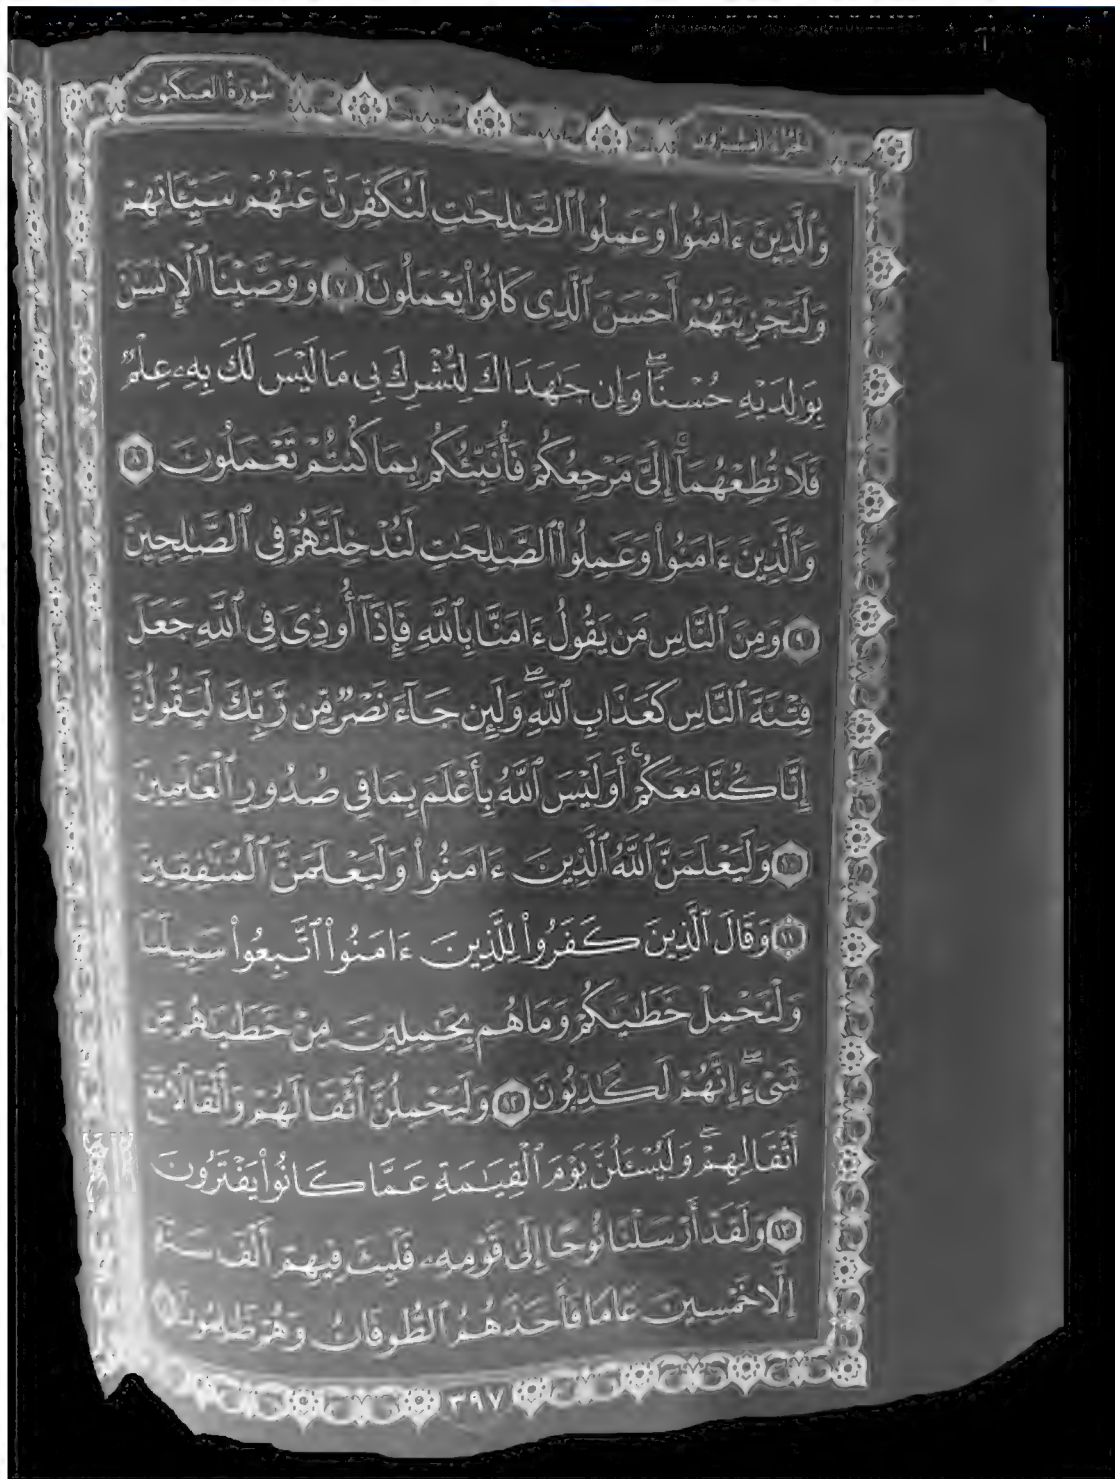 سُورَةُ العَنكَبُوتِ
الجُزْءُ العِشْرُونَ
وَٱلَّذِينَ ءَامَنُوا۟ وَعَمِلُوا۟ ٱلصَّٰلِحَٰتِ لَنُكَفِّرَنَّ عَنْهُمْ سَيِّـَٔاتِهِمْ
وَلَنَجْزِيَنَّهُمْ أَحْسَنَ ٱلَّذِى كَانُوا۟ يَعْمَلُونَ ٧ وَوَصَّيْنَا ٱلْإِنسَٰنَ
بِوَٰلِدَيْهِ حُسْنًاۖ وَإِن جَٰهَدَاكَ لِتُشْرِكَ بِى مَا لَيْسَ لَكَ بِهِۦ عِلْمٌ
فَلَا تُطِعْهُمَآۚ إِلَىَّ مَرْجِعُكُمْ فَأُنَبِّئُكُم بِمَا كُنتُمْ تَعْمَلُونَ ٨
وَٱلَّذِينَ ءَامَنُوا۟ وَعَمِلُوا۟ ٱلصَّٰلِحَٰتِ لَنُدْخِلَنَّهُمْ فِى ٱلصَّٰلِحِينَ
٩ وَمِنَ ٱلنَّاسِ مَن يَقُولُ ءَامَنَّا بِٱللَّهِ فَإِذَآ أُوذِىَ فِى ٱللَّهِ جَعَلَ
فِتْنَةَ ٱلنَّاسِ كَعَذَابِ ٱللَّهِۖ وَلَئِن جَآءَ نَصْرٌ مِّن رَّبِّكَ لَيَقُولُنَّ
إِنَّا كُنَّا مَعَكُمْۚ أَوَلَيْسَ ٱللَّهُ بِأَعْلَمَ بِمَا فِى صُدُورِ ٱلْعَٰلَمِينَ
١٠ وَلَيَعْلَمَنَّ ٱللَّهُ ٱلَّذِينَ ءَامَنُوا۟ وَلَيَعْلَمَنَّ ٱلْمُنَٰفِقِينَ
١١ وَقَالَ ٱلَّذِينَ كَفَرُوا۟ لِلَّذِينَ ءَامَنُوا۟ ٱتَّبِعُوا۟ سَبِيلَنَا
وَلْنَحْمِلْ خَطَٰيَٰكُمْ وَمَا هُم بِحَٰمِلِينَ مِنْ خَطَٰيَٰهُم مِّن
شَىْءٍۖ إِنَّهُمْ لَكَٰذِبُونَ ١٢ وَلَيَحْمِلُنَّ أَثْقَالَهُمْ وَأَثْقَالًا مَّعَ
أَثْقَالِهِمْۖ وَلَيُسْـَٔلُنَّ يَوْمَ ٱلْقِيَٰمَةِ عَمَّا كَانُوا۟ يَفْتَرُونَ
١٣ وَلَقَدْ أَرْسَلْنَا نُوحًا إِلَىٰ قَوْمِهِۦ فَلَبِثَ فِيهِمْ أَلْفَ سَنَةٍ
إِلَّا خَمْسِينَ عَامًا فَأَخَذَهُمُ ٱلطُّوفَانُ وَهُمْ ظَٰلِمُونَ ١٤
٣٩٧